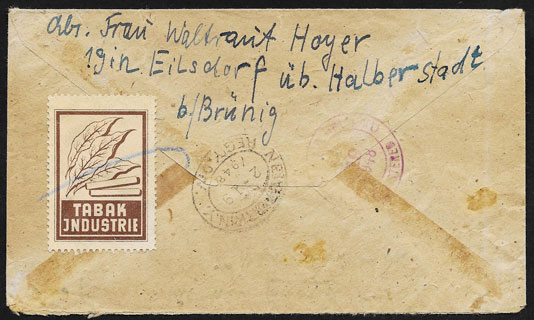 Abs. Frau Waltraut Hoyer
19in, Eilsdorf üb. Halberstadt
b/Brünig
TABAK
INDUSTRIE
1948
REG'Y DIV.
N.Y.